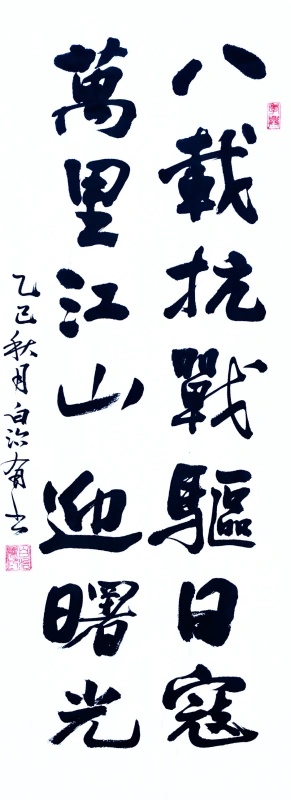 八載抗戰驅日寇
萬里江山迎曙光
乙巳秋月白治有书